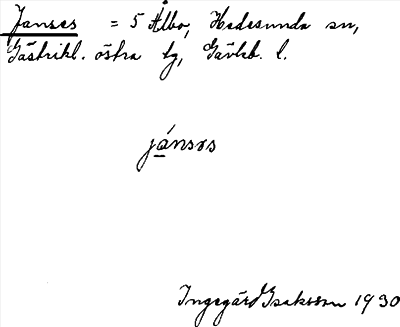 Janses = 5 Ålbo, Hedesunda sn,
Gästrikl. östra tg, Gävleb. l.
jánsəs
Ingegärd Isaksson 1930